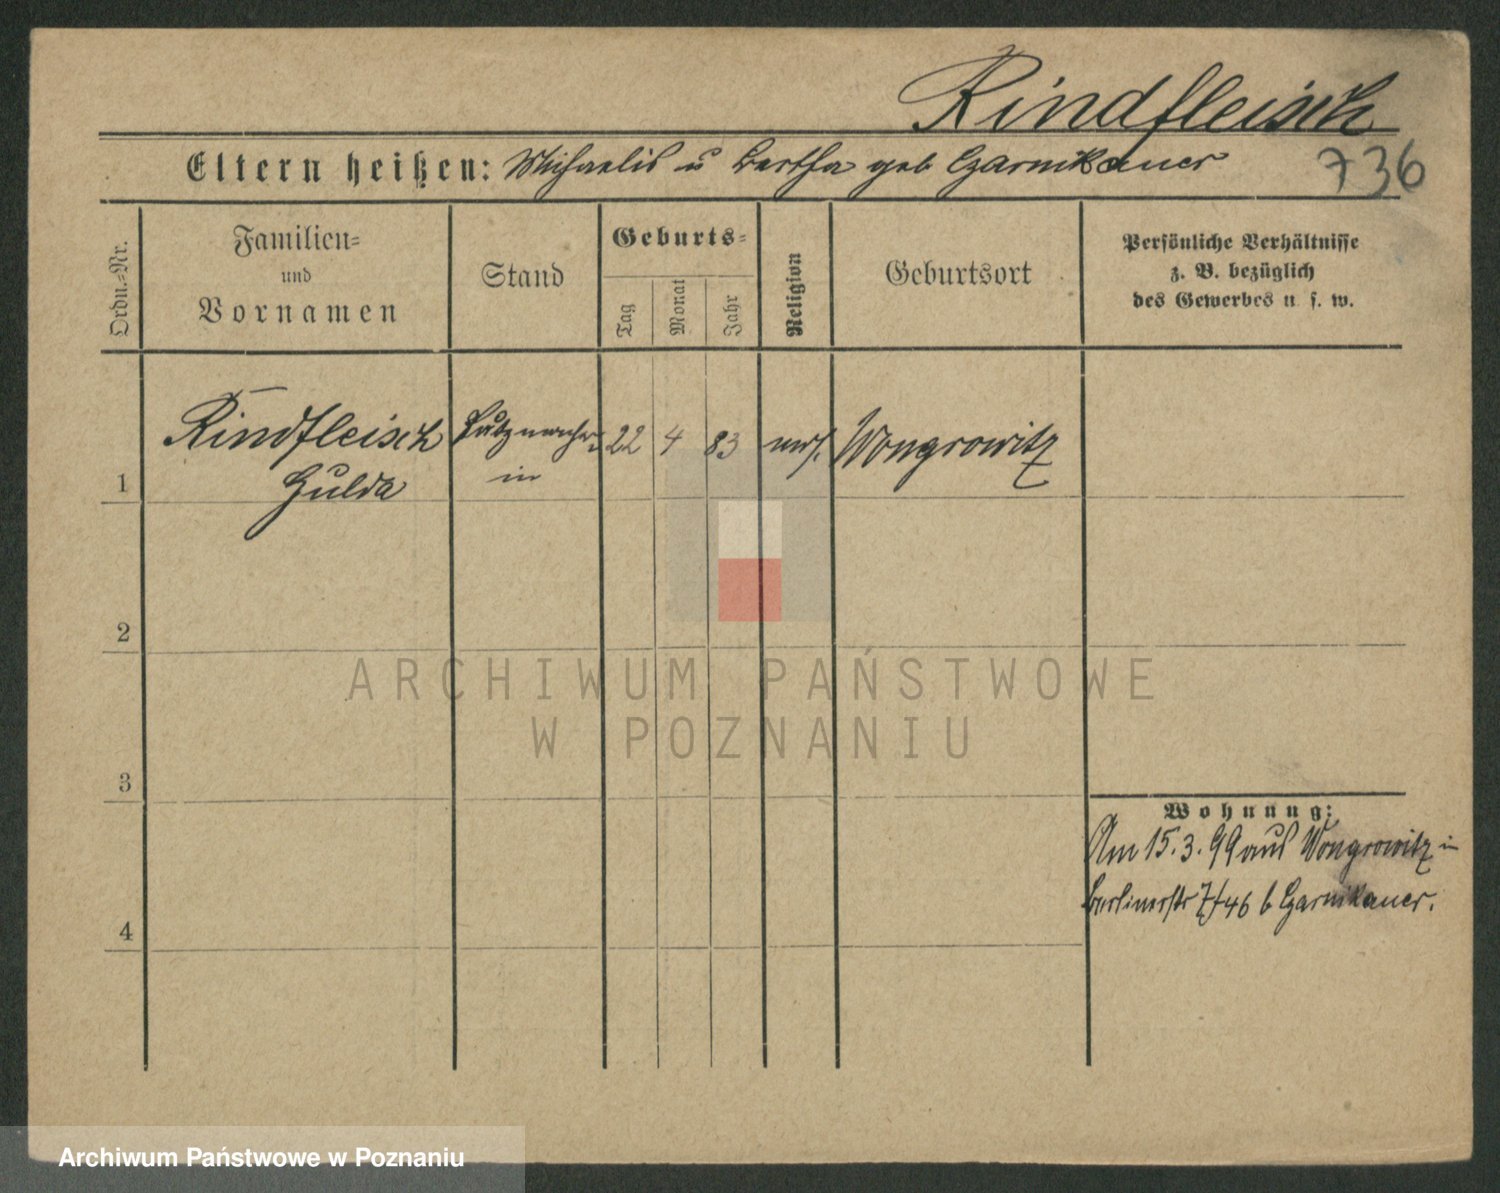 Rindfleisch
Eltern heißen: Michaelis u Bertha geb Czarnikauer
736
Ordn.-Nr.
Familien-
und
Vornamen
Stand
Geburts-
Tag
Monat
Jahr
Religion
Geburtsort
Persönliche Verhältnisse
z. B. bezüglich
des Gewerbes u. s. w.
1
Rindfleisch
Hulda
Putzmacher-
in
22
4
83
mos.
Wongrowitz
2
3
4
Wohnung:
Am 15.3.99 aus Wongrowitz in
Berlinerstr 7/46 b Czarnikauer.
ARCHIWUM PAŃSTWOWE
W POZNANIU
Archiwum Państwowe w Poznaniu